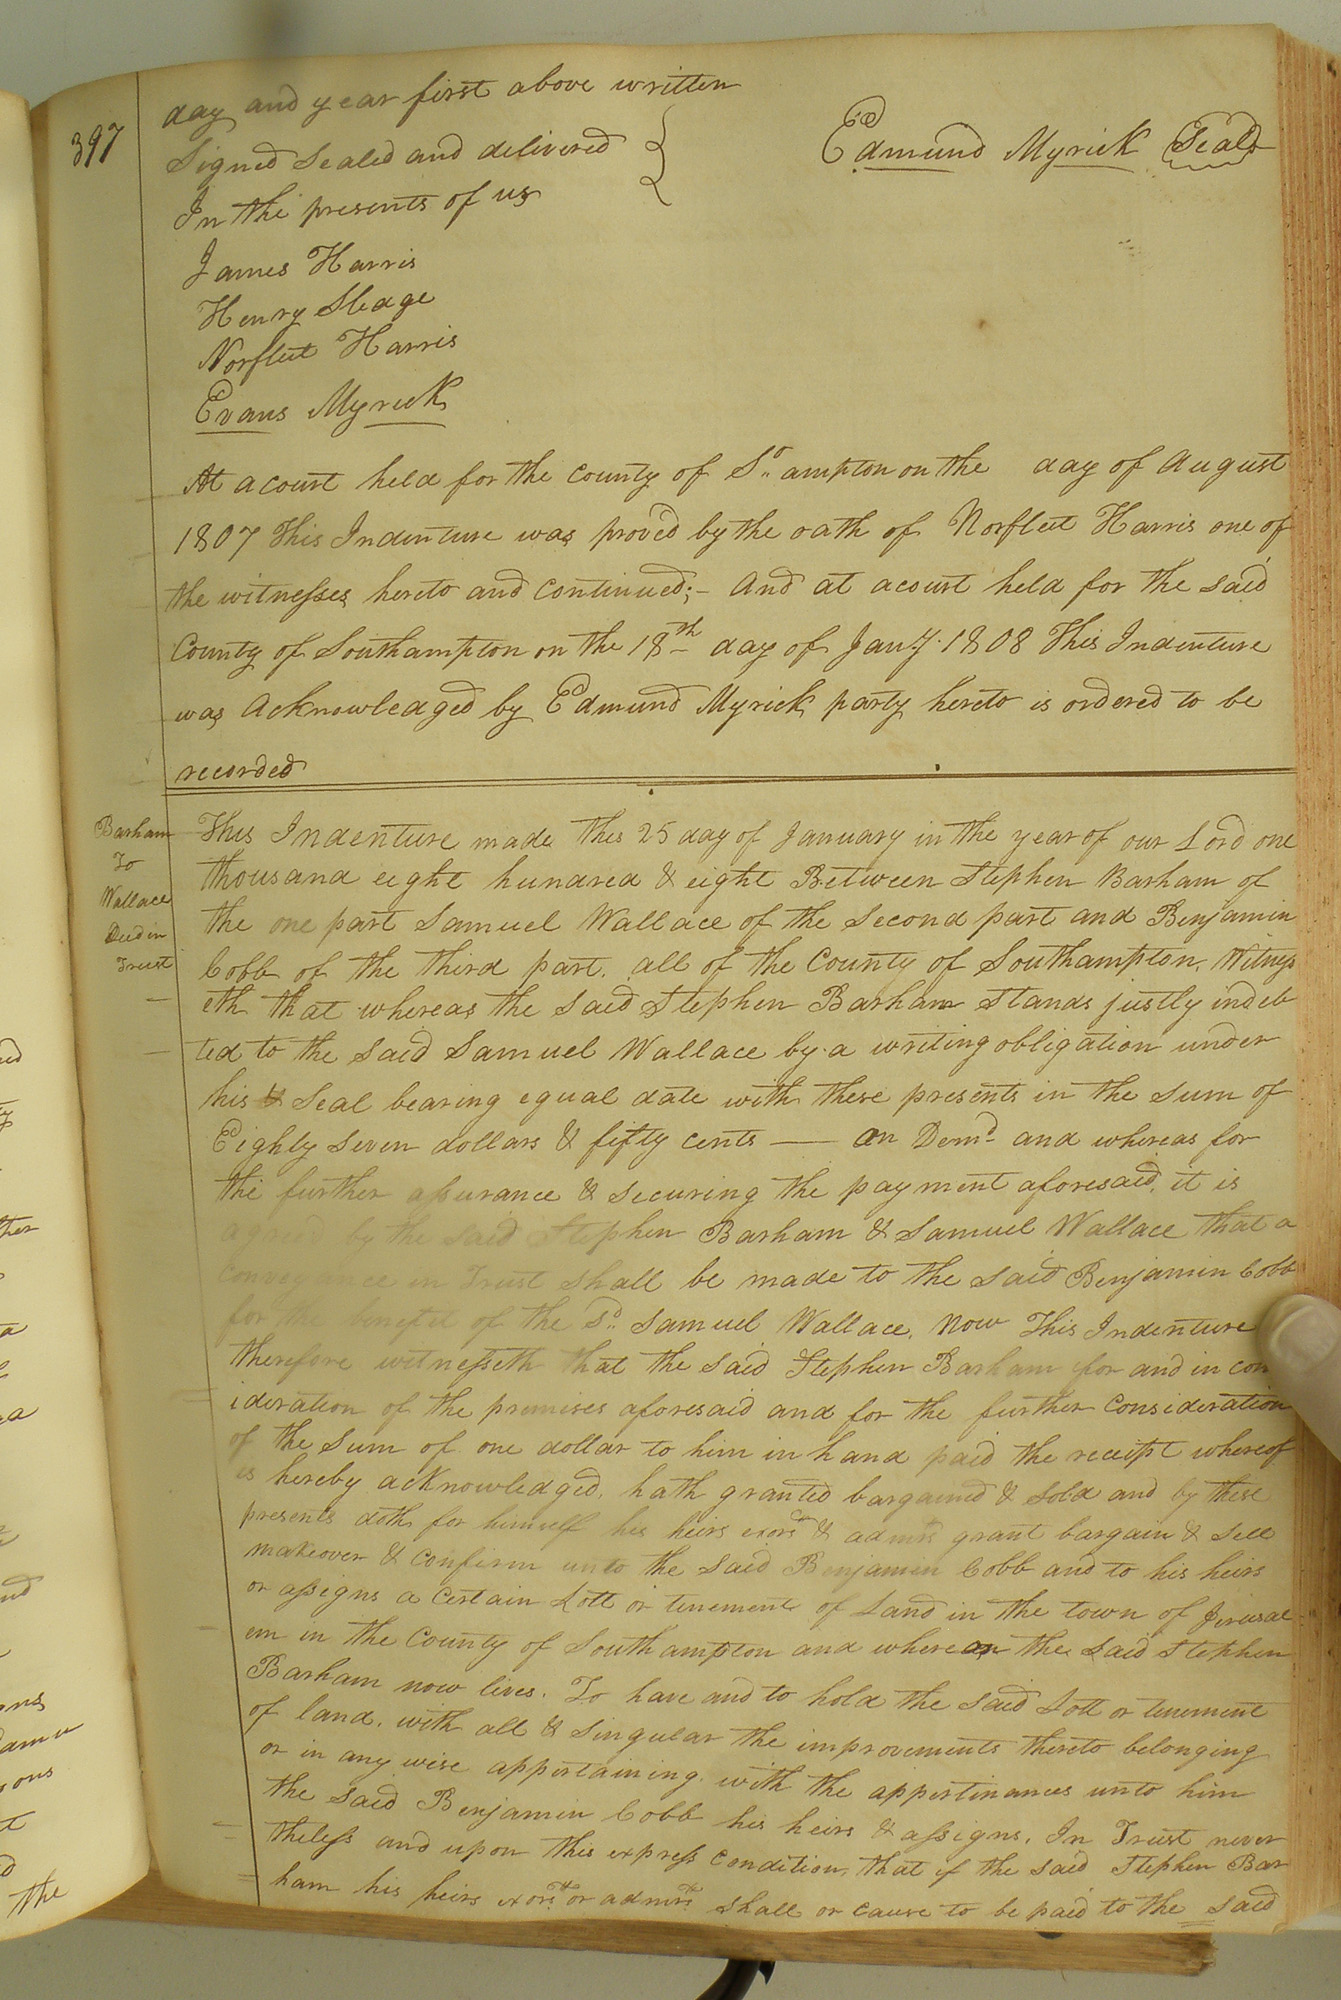 397
day and year first above written
Signed Sealed and delivered
In the presents of us
Edmund Myrick Seal
James Harris
Henry Sledge
Norfleet Harris
Evans Myrick
At a court held for the county of So. ampton on the day of August
1807 This Indenture was prov'd by the oath of Norfleet Harris one of
the witnesses hereto and continued;- And at a court held for the said
County of Southampton on the 18th day of Jany. 1808 This Indenture
was Acknowledged by Edmund Myrick party hereto is ordered to be
recorded
Barham
To
Wallace
Deed in
Trust
This Indenture made this 25 day of January in the year of our Lord one
thousand eight hundred & eight Between Stephen Barham of
the one part Samuel Wallace of the second part and Benjamin
Cobb of the third part. all of the County of Southampton. Witness
eth that whereas the said Stephen Barham Stands justly indeb
ted to the said Samuel Wallace by a writing obligation under
his & Seal bearing equal date with these presents in the sum of
Eighty seven dollars & fifty cents — on Demd. and whereas for
the further assurance & securing the payment aforesaid, it is
agreed by the said Stephen Barham & Samuel Wallace that a
conveyance in Trust shall be made to the said Benjamin Cobb
for the benefit of the Sd. Samuel Wallace. Now This Indenture
therefore witnesseth that the said Stephen Barham for and in con
ideration of the premises aforesaid and for the further Consideration
of the sum of one dollar to him in hand paid the receipt whereof
is hereby acknowledged, hath granted bargained & sold and by these
presents doth for himself his heirs exors & admrs grant bargain & sell
makeover & confirm unto the said Benjamin Cobb and to his heirs
or assigns a Certain Lott or tenement of Land in the town of Jerusal
em in the County of Southampton and where on the said Stephen
Barham now lives. To have and to hold the said Lott or tenement
of land. with all & singular the improvements thereto belonging
or in any wise appertaining with the appertinances unto him
the said Benjamin Cobb his heirs & assigns. In Trust never
theless and upon this express condition, that if the said Stephen Bar
ham his heirs exors or admrs shall or cause to be paid to the said
the